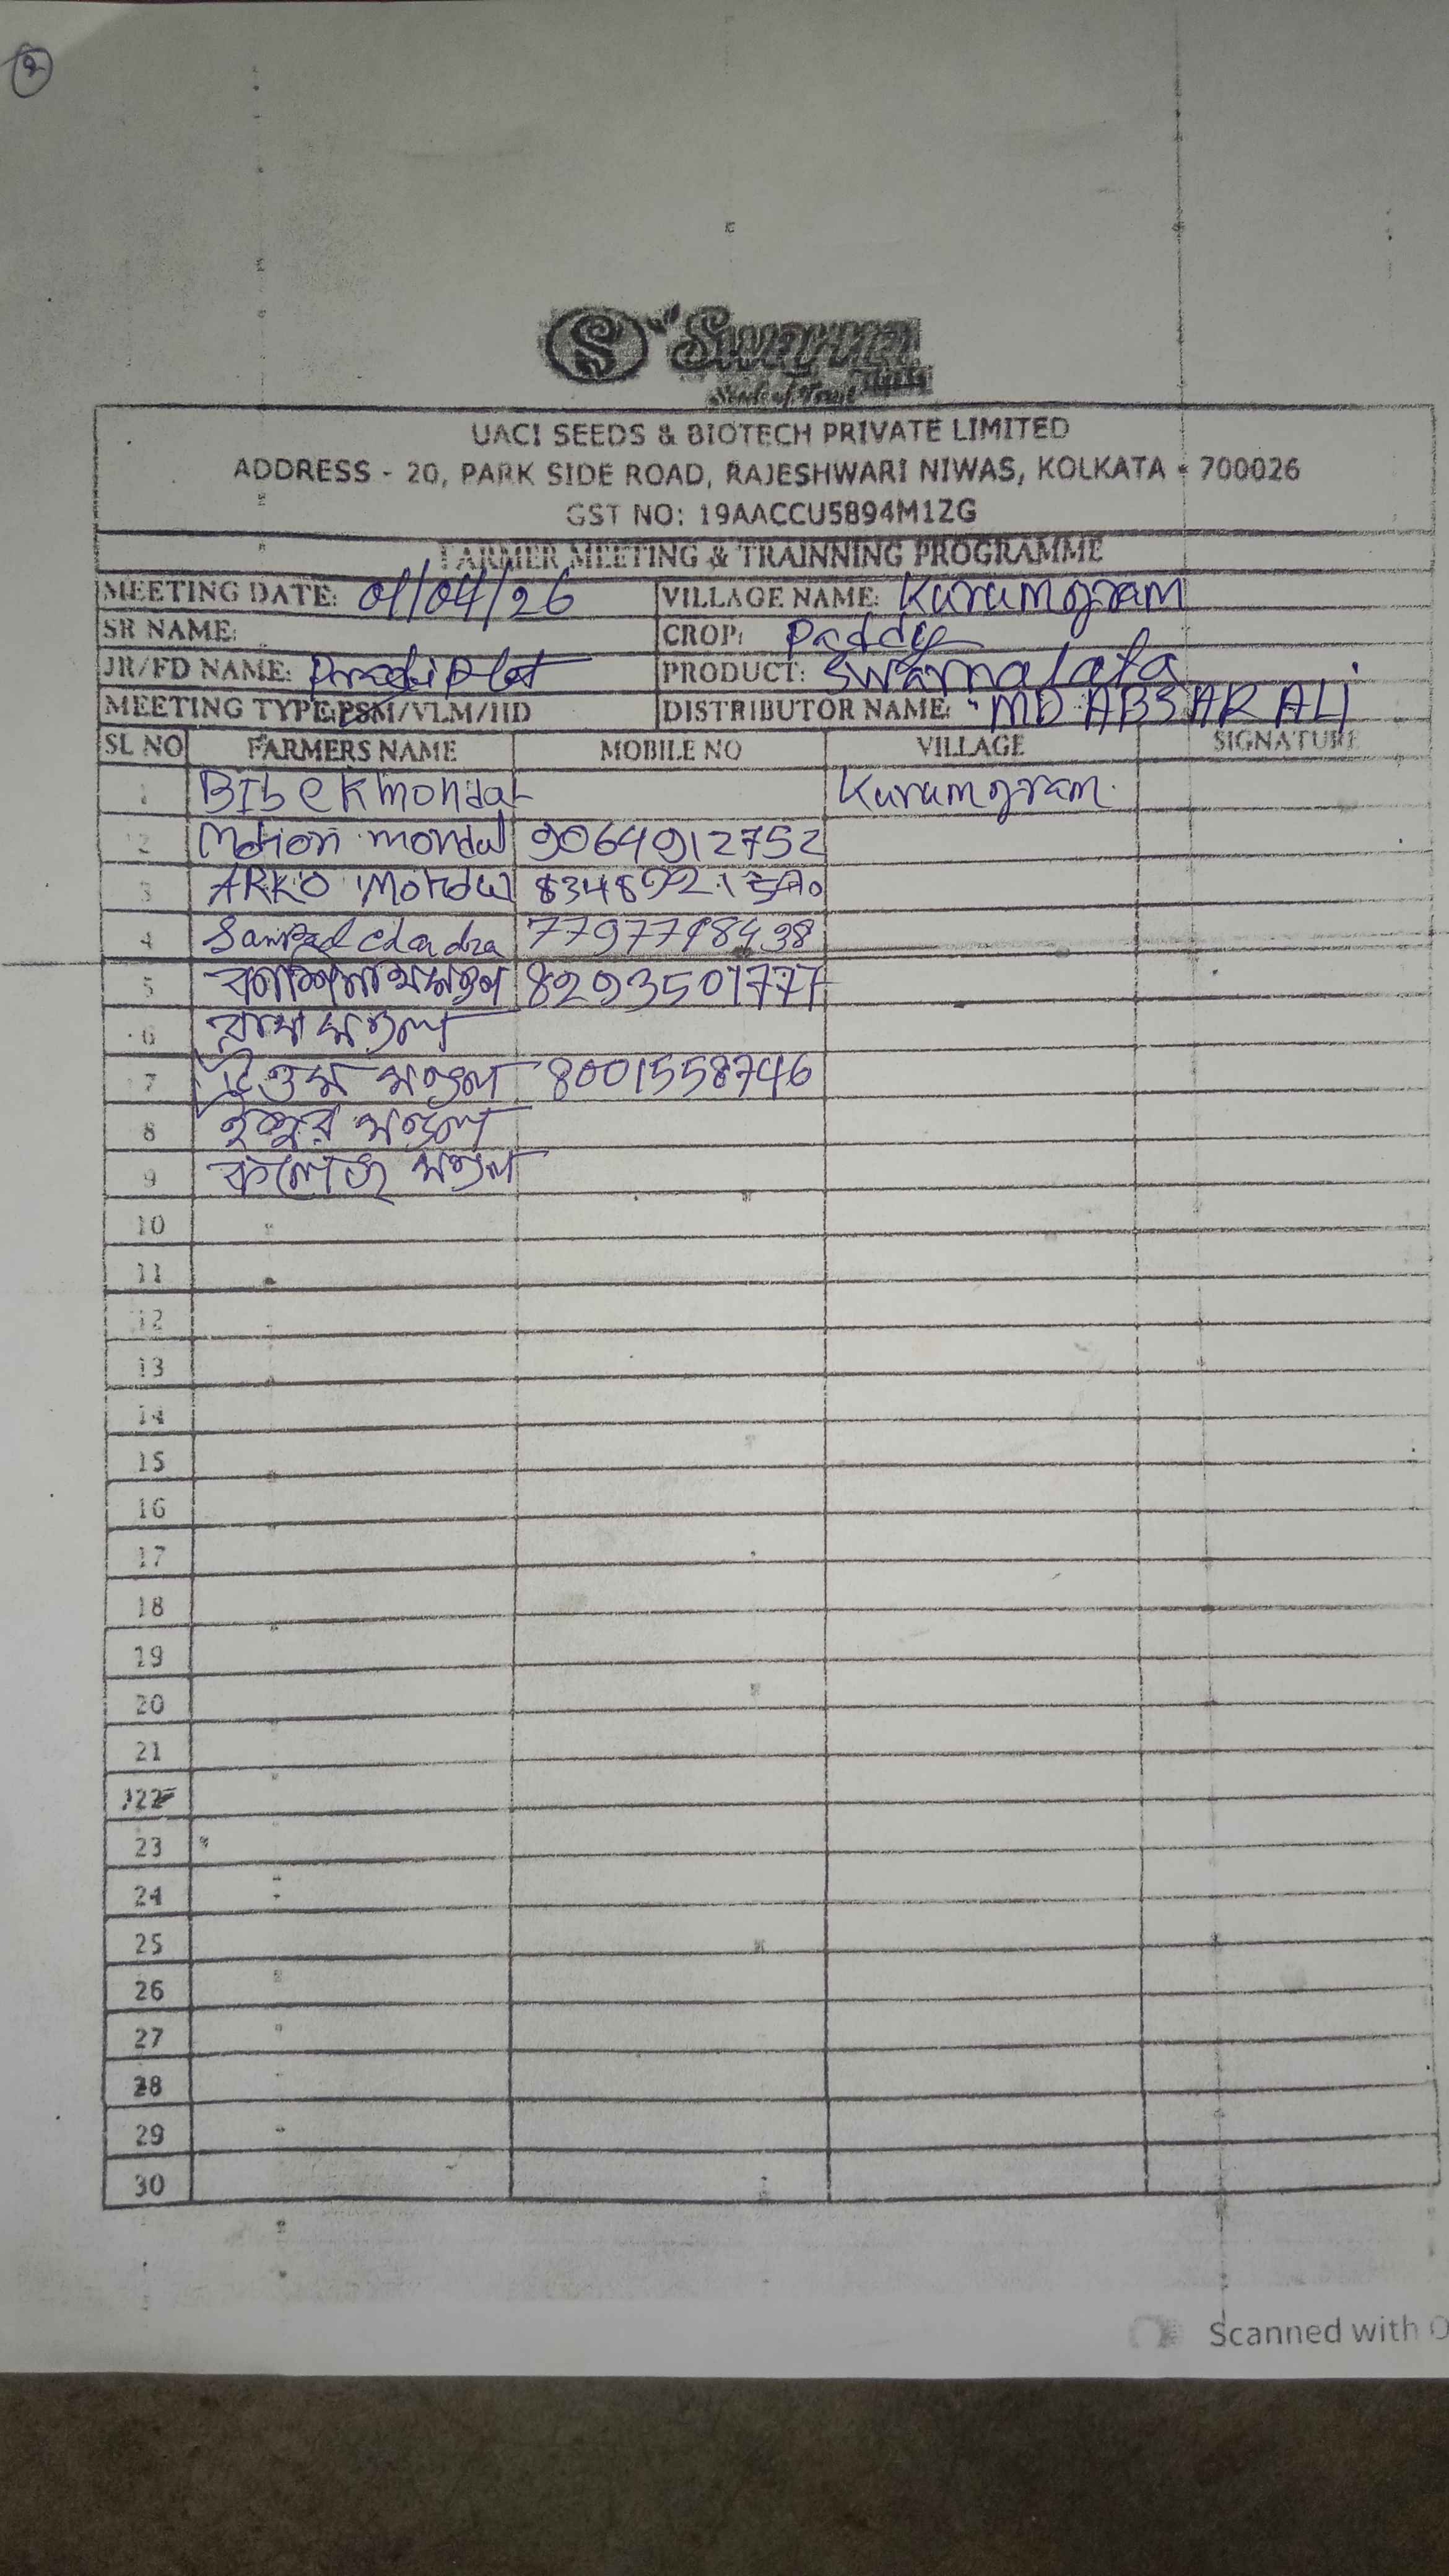 2
Swarna
Seeds of Trust
UACI SEEDS & BIOTECH PRIVATE LIMITED
ADDRESS - 20, PARK SIDE ROAD, RAJESHWARI NIWAS, KOLKATA - 700026
GST NO: 19AACCU5894M1ZG
FARMER MEETING & TRAINNING PROGRAMME
MEETING DATE: 01/04/26 VILLAGE NAME: Kurumgram
SR NAME: CROP: Paddy
JR/FD NAME: PRODUCT: Swarnalata
MEETING TYPE: PSM/VLM/IID DISTRIBUTOR NAME: MD ABSAR ALI
SL NO FARMERS NAME MOBILE NO VILLAGE SIGNATURE
1 BIbek mondal Kurumgram.
2 mondal 9064912752
3 ARKO Mondal
4 7797798438
5 8293501777
6 মণ্ডল
7 উত্তম মণ্ডল 8001558746
8 মণ্ডল
9 মণ্ডল
10
11
12
13
14
15
16
17
18
19
20
21
22
23
24
25
26
27
28
29
30
Scanned with O